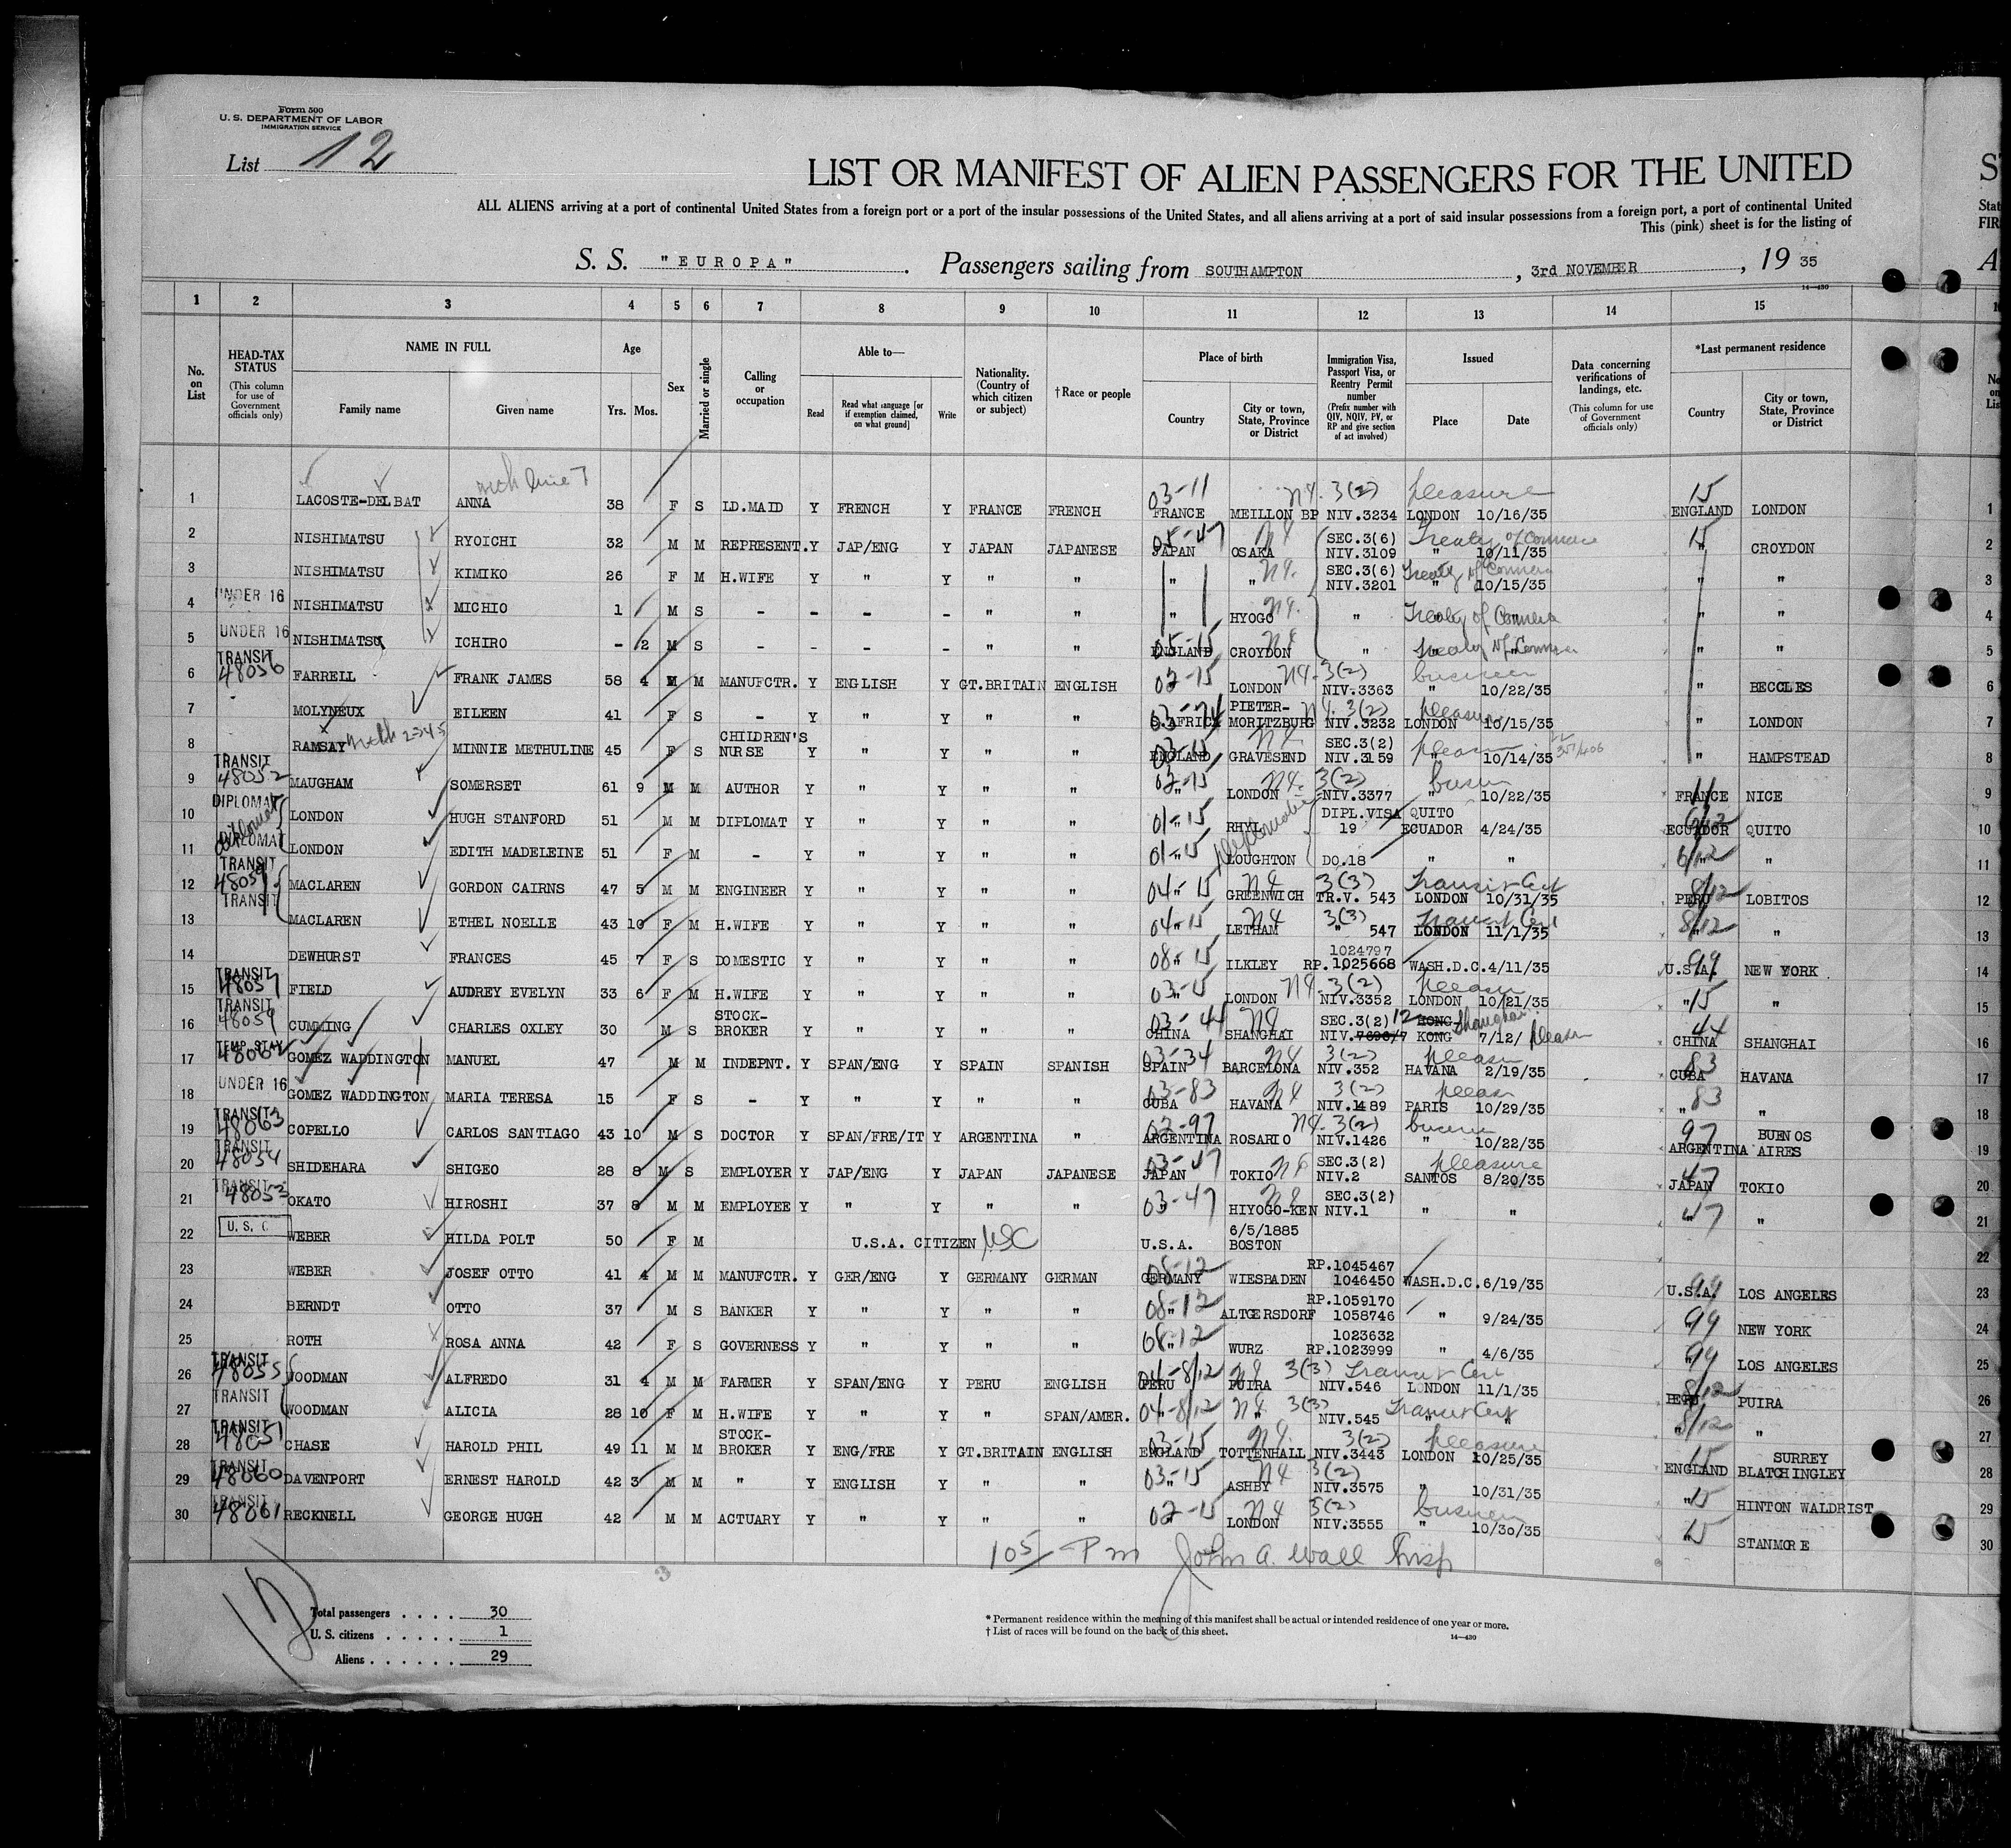 Form 500
U. S. DEPARTMENT OF LABOR
IMMIGRATION SERVICE
List 12
LIST OR MANIFEST OF ALIEN PASSENGERS FOR THE UNITED
ALL ALIENS arriving at a port of continental United States from a foreign port or a port of the insular possessions of the United States, and all aliens arriving at a port of said insular possessions from a foreign port, a port of continental United
This (pink) sheet is for the listing of
S. S. "EUROPA". Passengers sailing from SOUTHAMPTON, 3rd NOVEMBER, 19 35
14—430
1 2 3 4 5 6 7 8 9 10 11 12 13 14 15
No. on List
HEAD-TAX STATUS (This column for use of Government officials only)
NAME IN FULL Family name Given name
Age Yrs. Mos.
Sex
Married or single
Calling or occupation
Able to— Read Read what language [or if exemption claimed, on what ground] Write
Nationality. (Country of which citizen or subject)
† Race or people
Place of birth Country City or town, State, Province or District
Immigration Visa, Passport Visa, or Reentry Permit number (Prefix number with QIV, NQIV, PV, or RP and give section of act involved)
Issued Place Date
Data concerning verifications of landings, etc. (This column for use of Government officials only)
*Last permanent residence Country City or town, State, Province or District
1 LACOSTE-DELBAT ANNA 38 F S LD.MAID Y FRENCH Y FRANCE FRENCH 03-11 FRANCE MEILLON BP 3(2) NIV.3234 pleasure LONDON 10/16/35 15 ENGLAND LONDON 1
2 NISHIMATSU RYOICHI 32 M M REPRESENT. Y JAP/ENG Y JAPAN JAPANESE 05-47 JAPAN OSAKA SEC.3(6) NIV.3109 Treaty of Commerce " 10/11/35 15 " CROYDON 2
3 NISHIMATSU KIMIKO 26 F M H.WIFE Y " Y " " " " SEC.3(6) NIV.3201 Treaty of Commerce " 10/15/35 " " 3
4 UNDER 16 NISHIMATSU MICHIO 1 M S - - - - " " " HYOGO " Treaty of Commerce " " 4
5 UNDER 16 NISHIMATSU ICHIRO - 2 M S - - - - " " 05-15 ENGLAND CROYDON " Treaty of Commerce " " 5
6 TRANSIT 48056 FARRELL FRANK JAMES 58 4 M M MANUFCTR. Y ENGLISH Y GT.BRITAIN ENGLISH 02-15 " LONDON 3(2) NIV.3363 business " 10/22/35 " BECCLES 6
7 MOLYNEUX EILEEN 41 F S - Y " Y " " S.AFRICA PIETER-MORITZBURG 3(2) NIV.3232 pleasure LONDON 10/15/35 " LONDON 7
8 RAMSAY with 2345 MINNIE METHULINE 45 F S CHILDREN'S NURSE Y " Y " " 03-15 ENGLAND GRAVESEND SEC.3(2) NIV.3159 pleasure " 10/14/35 " HAMPSTEAD 8
9 TRANSIT 48052 MAUGHAM SOMERSET 61 9 M M AUTHOR Y " Y " " 02-15 " LONDON 3(2) NIV.3377 " 10/22/35 11 FRANCE NICE 9
10 DIPLOMAT LONDON HUGH STANFORD 51 M M DIPLOMAT Y " Y " " 01-15 " RHYL DIPL.VISA 19 QUITO ECUADOR 4/24/35 ECUADOR QUITO 10
11 DIPLOMAT LONDON EDITH MADELEINE 51 F M - Y " Y " " 01-15 " LOUGHTON DO.18 " " " 11
12 TRANSIT MACLAREN GORDON CAIRNS 47 5 M M ENGINEER Y " Y " " 04-15 " GREENWICH 3(3) TR.V. 543 Transit Cert LONDON 10/31/35 8/12 PERU LOBITOS 12
13 TRANSIT MACLAREN ETHEL NOELLE 43 10 F M H.WIFE Y " Y " " 04-15 " LETHAM 3(3) " 547 Transit Cert LONDON 11/1/35 8/12 " " 13
14 DEWHURST FRANCES 45 7 F S DOMESTIC Y " Y " " 08-15 " ILKLEY 1024797 RP.1025668 WASH.D.C. 4/11/35 99 U.S.A. NEW YORK 14
15 TRANSIT 48057 FIELD AUDREY EVELYN 33 6 F M H.WIFE Y " Y " " 03-15 " LONDON 3(2) NIV.3352 pleasure LONDON 10/21/35 15 " " 15
16 TRANSIT 48059 CUMMING CHARLES OXLEY 30 M S STOCK-BROKER Y " Y " " 03-44 CHINA SHANGHAI SEC.3(2) 12 NIV.7696/7 HONG KONG Shanghai 7/12/ pleasure 44 CHINA SHANGHAI 16
17 TEMP. STAY GOMEZ WADDINGTON MANUEL 47 M M INDEPNT. Y SPAN/ENG Y SPAIN SPANISH 03-34 SPAIN BARCELONA 3(2) NIV.352 pleasure HAVANA 2/19/35 83 CUBA HAVANA 17
18 UNDER 16 GOMEZ WADDINGTON MARIA TERESA 15 F S - Y " Y " " 03-83 CUBA HAVANA 3(2) NIV.1489 PARIS 10/29/35 83 " " 18
19 TRANSIT 48063 COPELLO CARLOS SANTIAGO 43 10 M S DOCTOR Y SPAN/FRE/IT Y ARGENTINA " 02-97 ARGENTINA ROSARIO 3(2) NIV.1426 business " 10/22/35 97 ARGENTINA BUENOS AIRES 19
20 TRANSIT 48054 SHIDEHARA SHIGEO 28 8 M S EMPLOYER Y JAP/ENG Y JAPAN JAPANESE 03-47 JAPAN TOKIO SEC.3(2) NIV.2 pleasure SANTOS 8/20/35 47 JAPAN TOKIO 20
21 TRANSIT 48053 OKATO HIROSHI 37 8 M M EMPLOYEE Y " Y " " 03-47 " HIYOGO-KEN SEC.3(2) NIV.1 " " 47 " " 21
22 U. S. C WEBER HILDA POLT 50 F M U.S.A. CITIZEN USC U.S.A. 6/5/1885 BOSTON 22
23 WEBER JOSEF OTTO 41 4 M M MANUFCTR. Y GER/ENG Y GERMANY GERMAN 08-12 GERMANY WIESBADEN RP.1045467 1046450 WASH.D.C. 6/19/35 99 U.S.A. LOS ANGELES 23
24 BERNDT OTTO 37 M S BANKER Y " Y " " 08-12 " ALTGERSDORF RP.1059170 1058746 " 9/24/35 99 " NEW YORK 24
25 ROTH ROSA ANNA 42 F S GOVERNESS Y " Y " " 08-12 " WURZ 1023632 RP.1023999 " 4/6/35 99 " LOS ANGELES 25
26 TRANSIT 48055 WOODMAN ALFREDO 31 4 M M FARMER Y SPAN/ENG Y PERU ENGLISH 04-8/12 PERU PUIRA 3(3) NIV.546 Transit Cert LONDON 11/1/35 8/12 PERU PUIRA 26
27 TRANSIT WOODMAN ALICIA 28 10 F M H.WIFE Y " Y " SPAN/AMER. 04-8/12 " " 3(3) NIV.545 Transit Cert " " 8/12 " " 27
28 TRANSIT 48051 CHASE HAROLD PHIL 49 11 M M STOCK-BROKER Y ENG/FRE Y GT.BRITAIN ENGLISH 03-15 ENGLAND TOTTENHALL 3(2) NIV.3443 pleasure LONDON 10/25/35 15 ENGLAND SURREY BLATCHINGLEY 28
29 TRANSIT 48060 DAVENPORT ERNEST HAROLD 42 3 M M " Y ENGLISH Y " " 03-15 " ASHBY 3(2) NIV.3575 " 10/31/35 15 " HINTON WALDRIST 29
30 TRANSIT 48061 RECKNELL GEORGE HUGH 42 M M ACTUARY Y " Y " " 02-15 " LONDON 3(2) NIV.3555 business " 10/30/35 15 " STANMORE 30
105 Pm John A. Wall Insp
Total passengers . . . . 30
U. S. citizens . . . . . 1
Aliens . . . . . . 29
* Permanent residence within the meaning of this manifest shall be actual or intended residence of one year or more.
† List of races will be found on the back of this sheet.
14—430